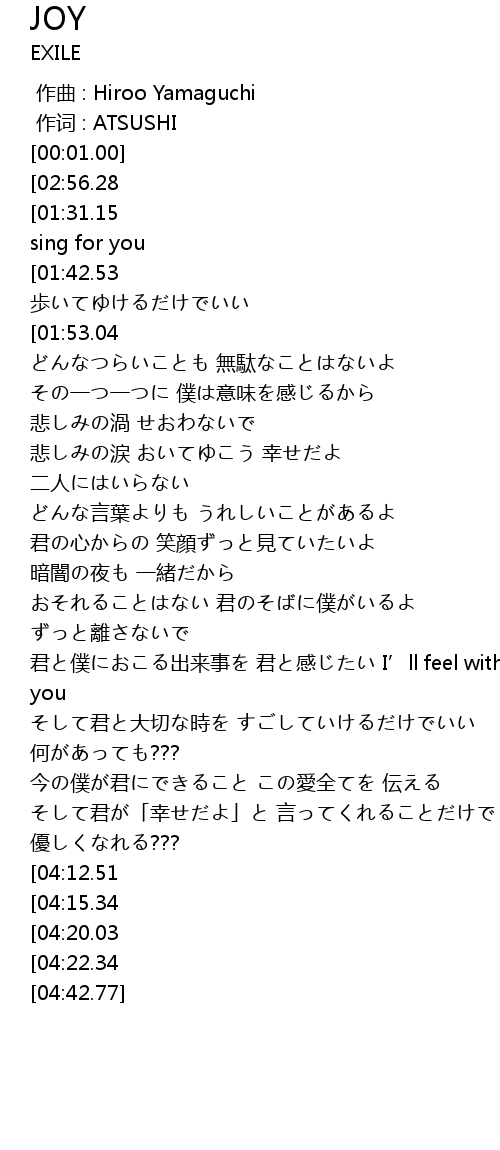 JOY
EXILE
作曲 : Hiroo Yamaguchi
作词 : ATSUSHI
[00:01.00]
[02:56.28
[01:31.15
sing for you
[01:42.53
歩いてゆけるだけでいい
[01:53.04
どんなつらいことも 無駄なことはないよ
その一つ一つに 僕は意味を感じるから
悲しみの渦 せおわないで
悲しみの涙 おいてゆこう 幸せだよ
二人にはいらない
どんな言葉よりも うれしいことがあるよ
君の心からの 笑顔ずっと見ていたいよ
暗闇の夜も 一緒だから
おそれることはない 君のそばに僕がいるよ
ずっと離さないで
君と僕におこる出来事を 君と感じたい I’ll feel with
you
そして君と大切な時を すごしていけるだけでいい
何があっても???
今の僕が君にできること この愛全てを 伝える
そして君が「幸せだよ」と 言ってくれることだけで
優しくなれる???
[04:12.51
[04:15.34
[04:20.03
[04:22.34
[04:42.77]